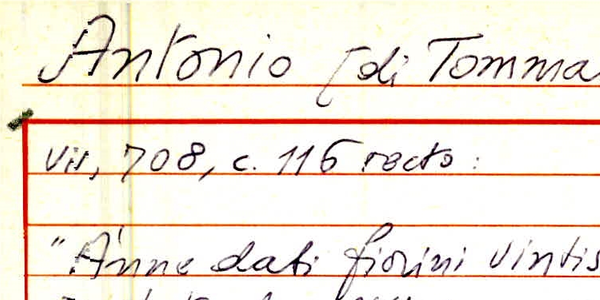 Antonio [di Tomma
VII, 708, c. 116 recto:
"Ànne dati fiorini vintis